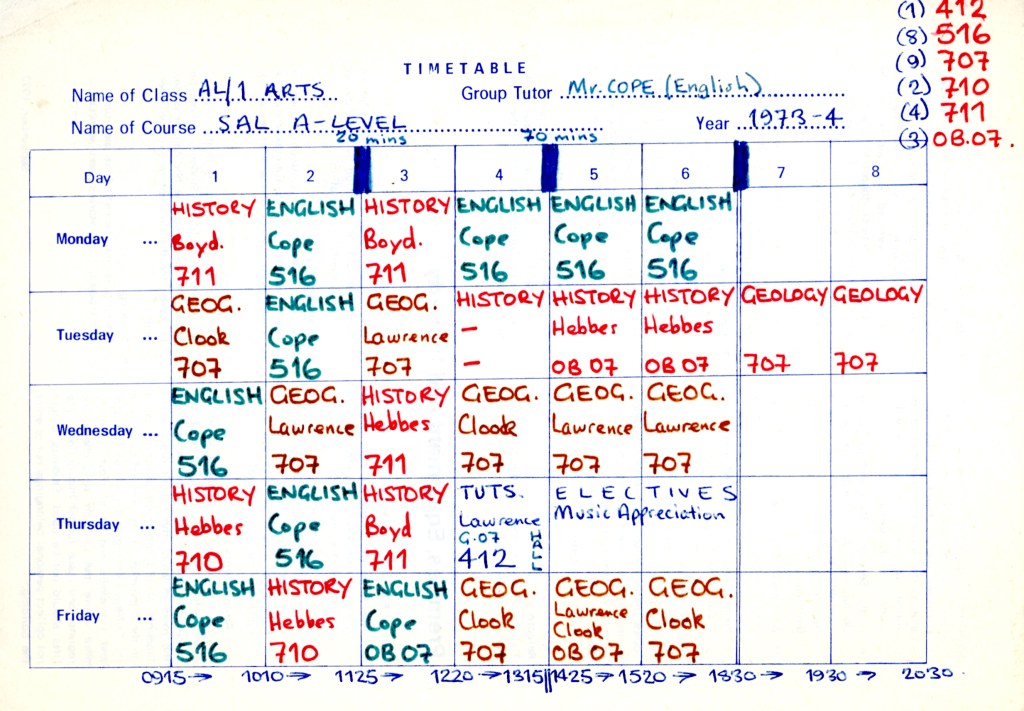 (1) 412
(8) 516
(9) 707
(2) 710
(4) 711
(3) OB.07.
TIMETABLE
Name of Class AL/1 ARTS Group Tutor Mr. COPE (English)
Name of Course SAL A-LEVEL Year 1973-4
20 mins 70 mins
Day 1 2 3 4 5 6 7 8
HISTORY ENGLISH HISTORY ENGLISH ENGLISH ENGLISH
Monday ... Boyd. Cope Boyd. Cope Cope Cope
711 516 711 516 516 516
GEOG. ENGLISH GEOG. HISTORY HISTORY HISTORY GEOLOGY GEOLOGY
Tuesday ... Clook Cope Lawrence – Hebbes Hebbes
707 516 707 – OB 07 OB 07 707 707
ENGLISH GEOG. HISTORY GEOG. GEOG. GEOG.
Wednesday ... Cope Lawrence Hebbes Clook Lawrence Lawrence
516 707 711 707 707 707
HISTORY ENGLISH HISTORY TUTS. ELECTIVES
Thursday ... Hebbes Cope Boyd Lawrence Music Appreciation
G.07 HALL
710 516 711 412
ENGLISH HISTORY ENGLISH GEOG. GEOG. GEOG.
Friday ... Cope Hebbes Cope Clook Lawrence Clook Clook
516 710 OB 07 707 OB 07 707
0915→ 1010→ 1125→ 1220→ 1315 1425→ 1520→ 1830→ 1930→ 2030.